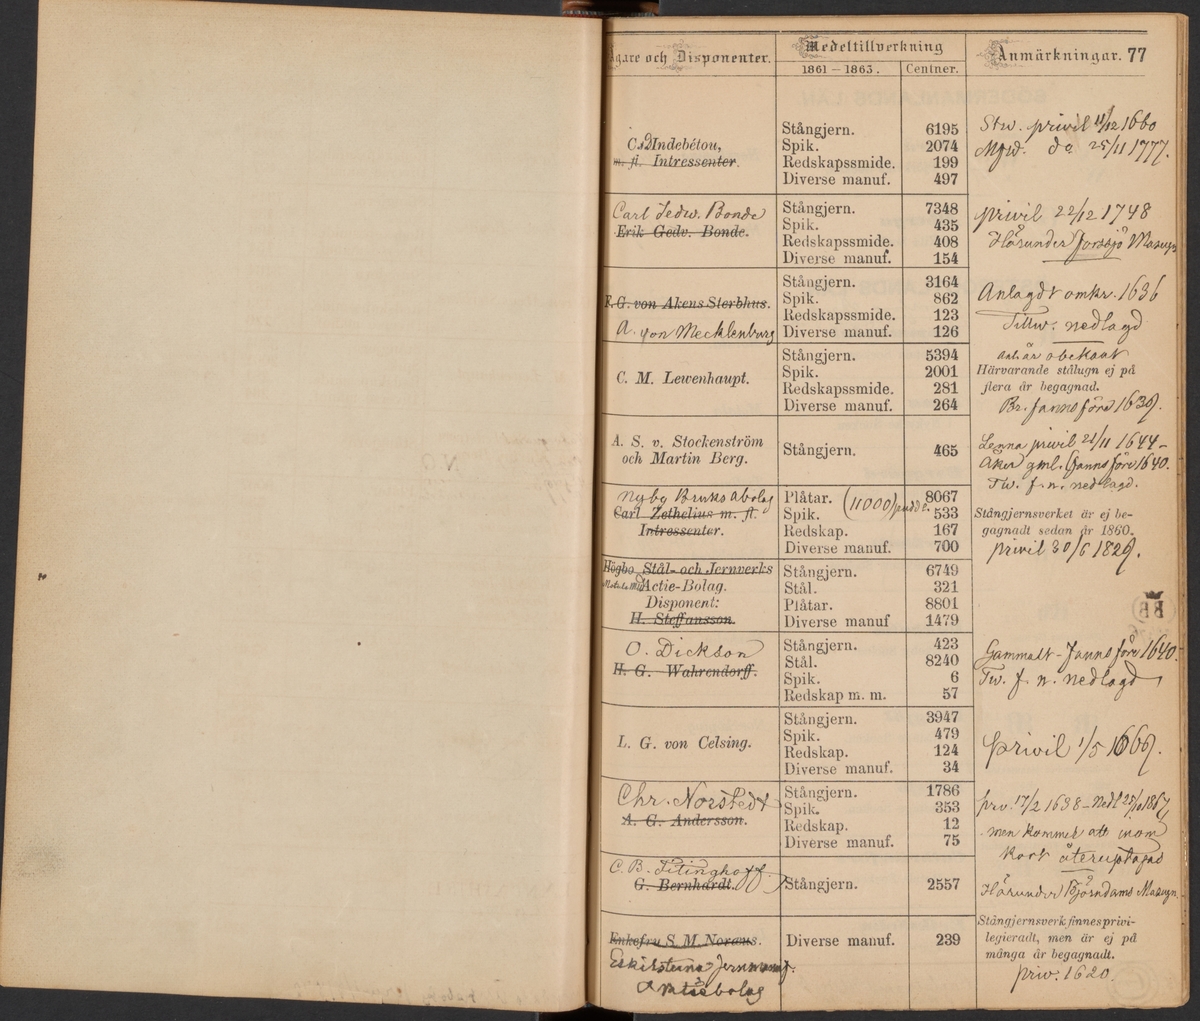 Ägare och Disponenter. Medeltillverkning Anmärkningar. 77
1861 – 1863. Centner.
C. Indebétou,
m. fl. Intressenter.
Stångjern. 6195
Spik. 2074
Redskapssmide. 199
Diverse manuf. 497
Stw. privil 11/12 1660
do 25/11 1777.
Carl Jedw. Bonde
Erik Gedv. Bonde.
Stångjern. 7348
Spik. 435
Redskapssmide. 408
Diverse manuf. 154
privil 22/12 1748
Härunder Forssjö Masugn
F. G. von Akens Sterbhus.
A. von Mecklenburg
Stångjern. 3164
Spik. 862
Redskapssmide. 123
Diverse manuf. 126
Anlagdt omkr. 1636
Tillw. nedlagd
C. M. Lewenhaupt.
Stångjern. 5394
Spik. 2001
Redskapssmide. 281
Diverse manuf. 264
är obekant
Härvarande stålugn ej på
flera år begagnad.
Br. fanns före 1639.
A. S. v. Stockenström
och Martin Berg.
Stångjern. 465
Lenna privil 21/11 1644 –
Åker gml. fanns före 1640.
Tw. f. n. nedlagd.
Nyby Bruks abolag
Carl Zethelius m. fl.
Intressenter.
Plåtar. 8067
Spik. (11000) 533
Redskap. 167
Diverse manuf. 700
Stångjernsverket är ej be-
gagnadt sedan år 1860.
privil 30/6 1829.
Högbo Stål- och Jernverks
Actie-Bolag.
Disponent:
H. Steffansson.
Stångjern. 6749
Stål. 321
Plåtar. 8801
Diverse manuf 1479
O. Dickson
H. G. Wahrendorff.
Stångjern. 423
Stål. 8240
Spik. 6
Redskap m. m. 57
Gammalt – fanns före 1640.
Tw. f. n. nedlagd
L. G. von Celsing.
Stångjern. 3947
Spik. 479
Redskap. 124
Diverse manuf. 34
privil 1/5 1669.
Chr. Norstedt
A. G. Andersson.
Stångjern. 1786
Spik. 353
Redskap. 12
Diverse manuf. 75
prv. 17/2 1638 – Nedl 1867,
men kommer att inom
kort återupptagas
C. B. Fitinghoff
G. Bernhardt.
Stångjern. 2557
Härunder Björndams Masugn.
Enkefru S. M. Noræus.
Eskilstuna Jernmanuf.
Aktiebolag
Diverse manuf. 239
Stångjernsverk finnes privi-
legieradt, men är ej på
många år begagnadt.
priv. 1620.